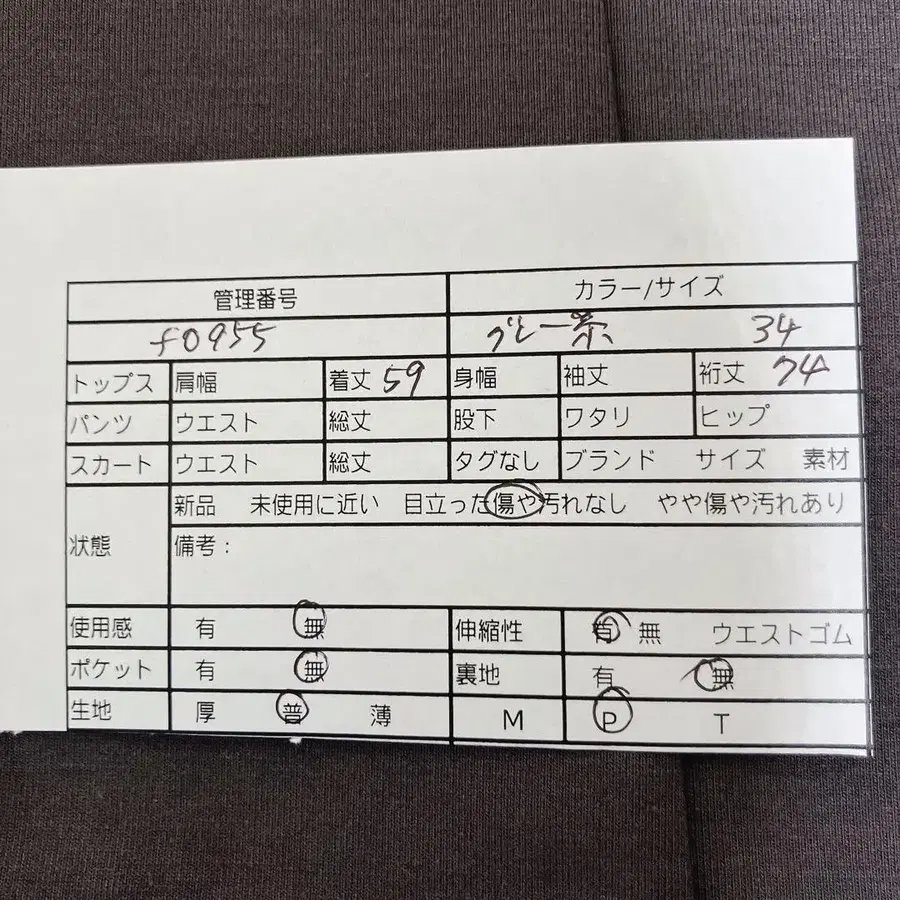 管理番号 カラー/サイズ
f0955 グレー茶 34
トップス 肩幅 着丈 59 身幅 袖丈 裄丈 74
パンツ ウエスト 総丈 股下 ワタリ ヒップ
スカート ウエスト 総丈 タグなし ブランド サイズ 素材
状態 新品 未使用に近い 目立った傷や汚れなし やや傷や汚れあり
備考：
使用感 有 無 伸縮性 有 無 ウエストゴム
ポケット 有 無 裏地 有 無
生地 厚 普 薄 M P T